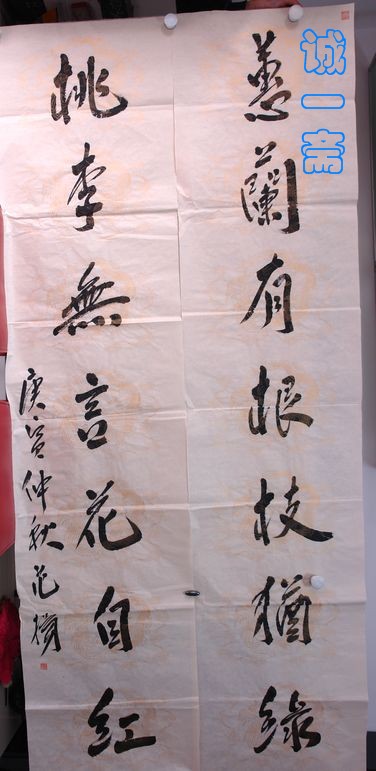 蕙蘭有根枝猶綠
桃李無言花自紅
庚寅仲秋范
诚一斋